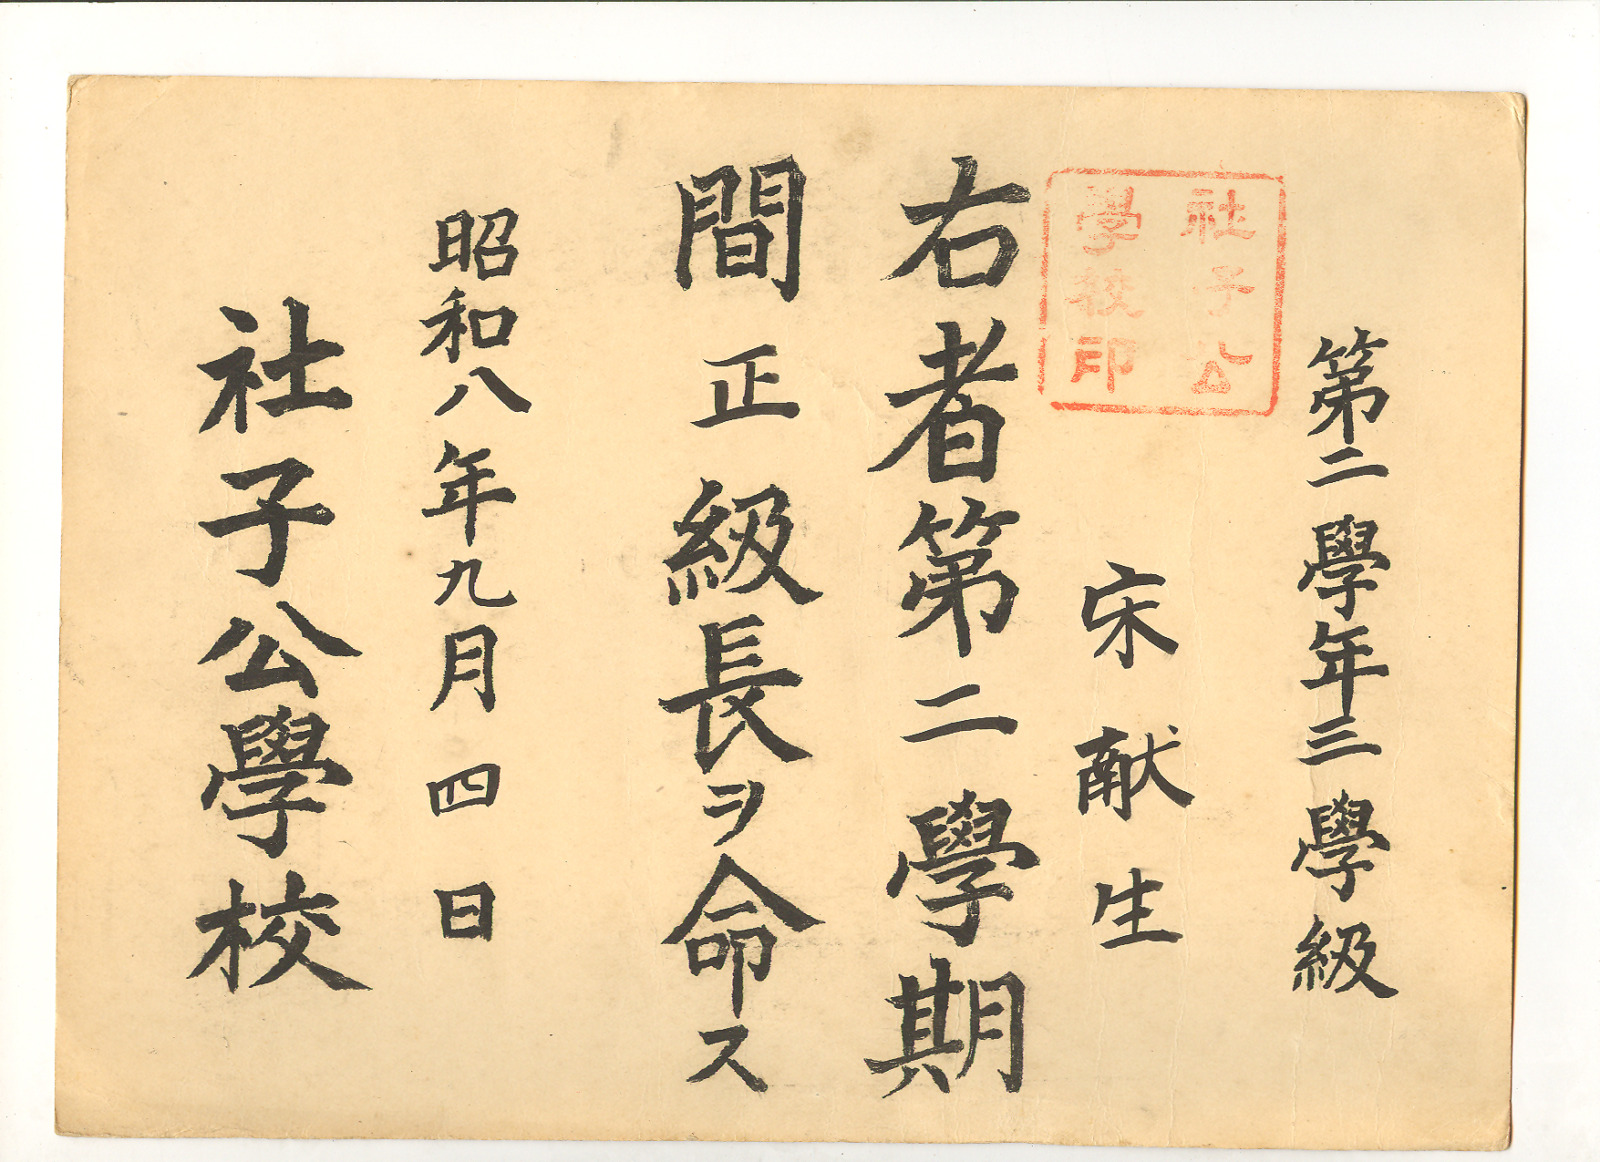 第二學年三學級
社子公
學校印
宋献生
右者第二學期
間正級長ヲ命ス
昭和八年九月四日
社子公學校